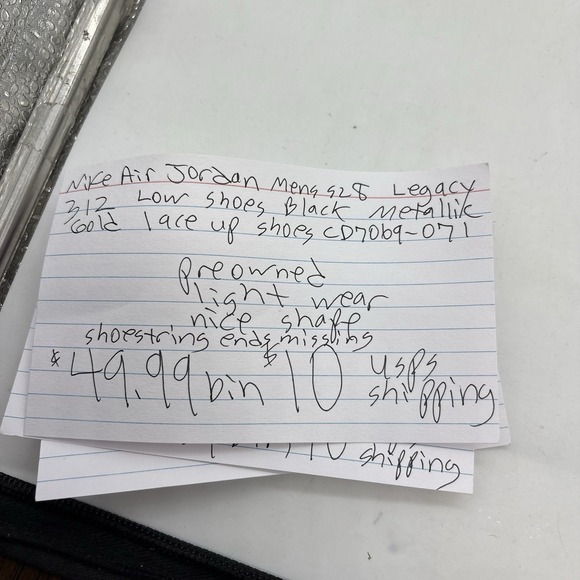 Nike Air Jordan Mens sz 8 Legacy
312 Low shoes Black Metallic
Gold lace up shoes CD7069-071
preowned
light wear
nice shape
shoestring ends missing
$49.99 bin $10 usps
shipping
10
shipping